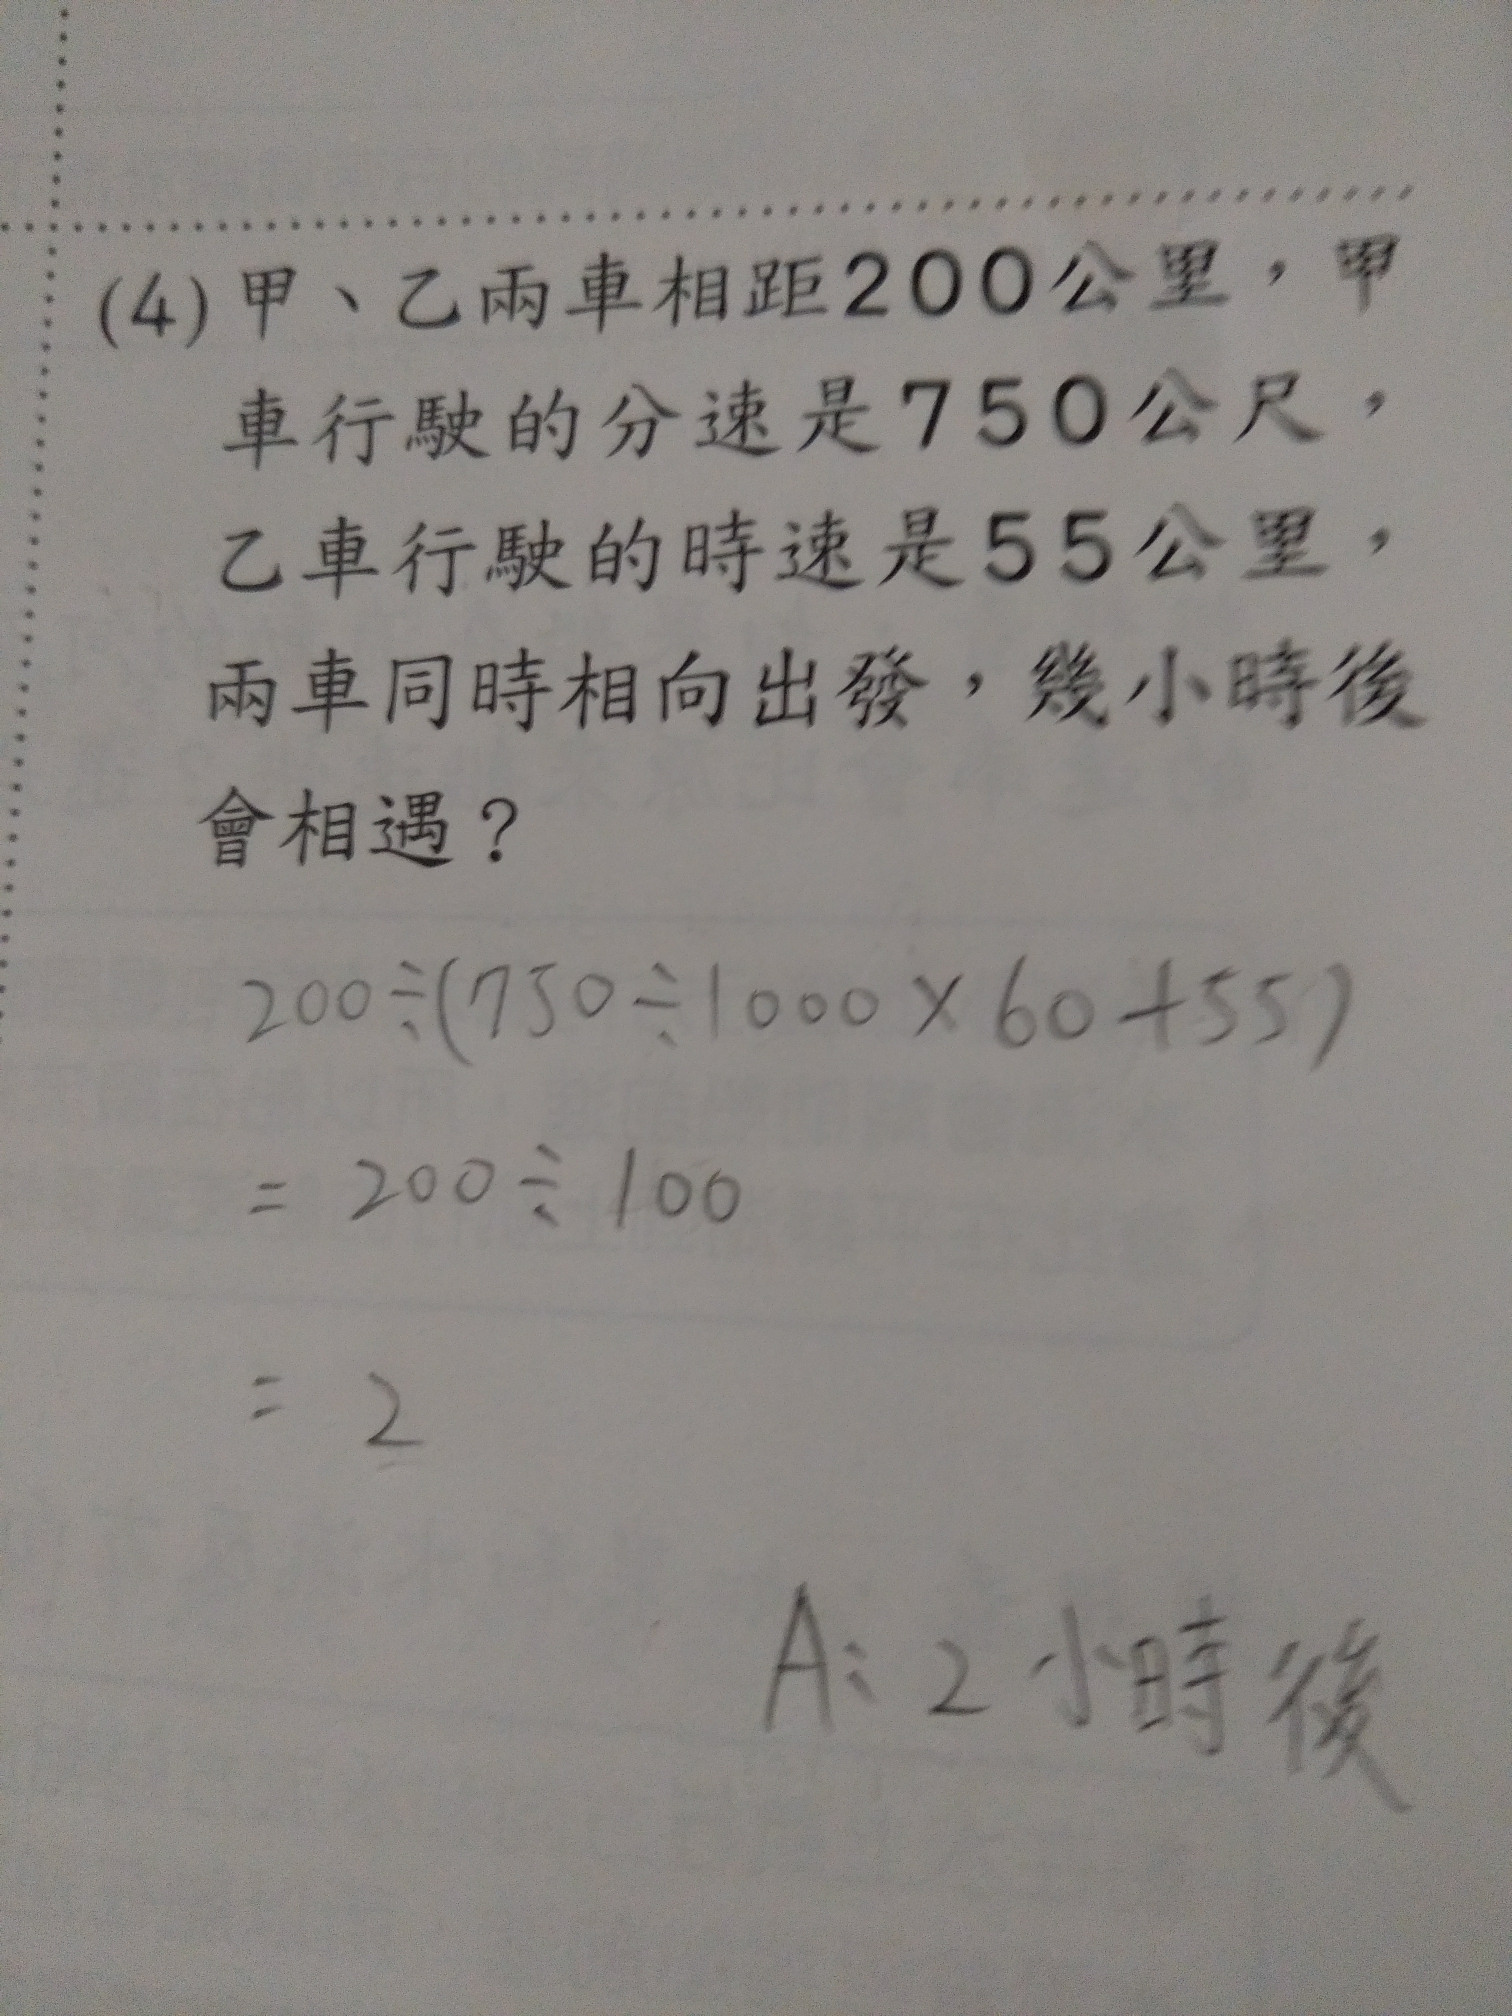 (4)甲、乙兩車相距200公里，甲
車行駛的分速是750公尺，
乙車行駛的時速是55公里，
兩車同時相向出發，幾小時後
會相遇？
200÷(750÷1000×60+55)
= 200÷100
= 2
A: 2小時後